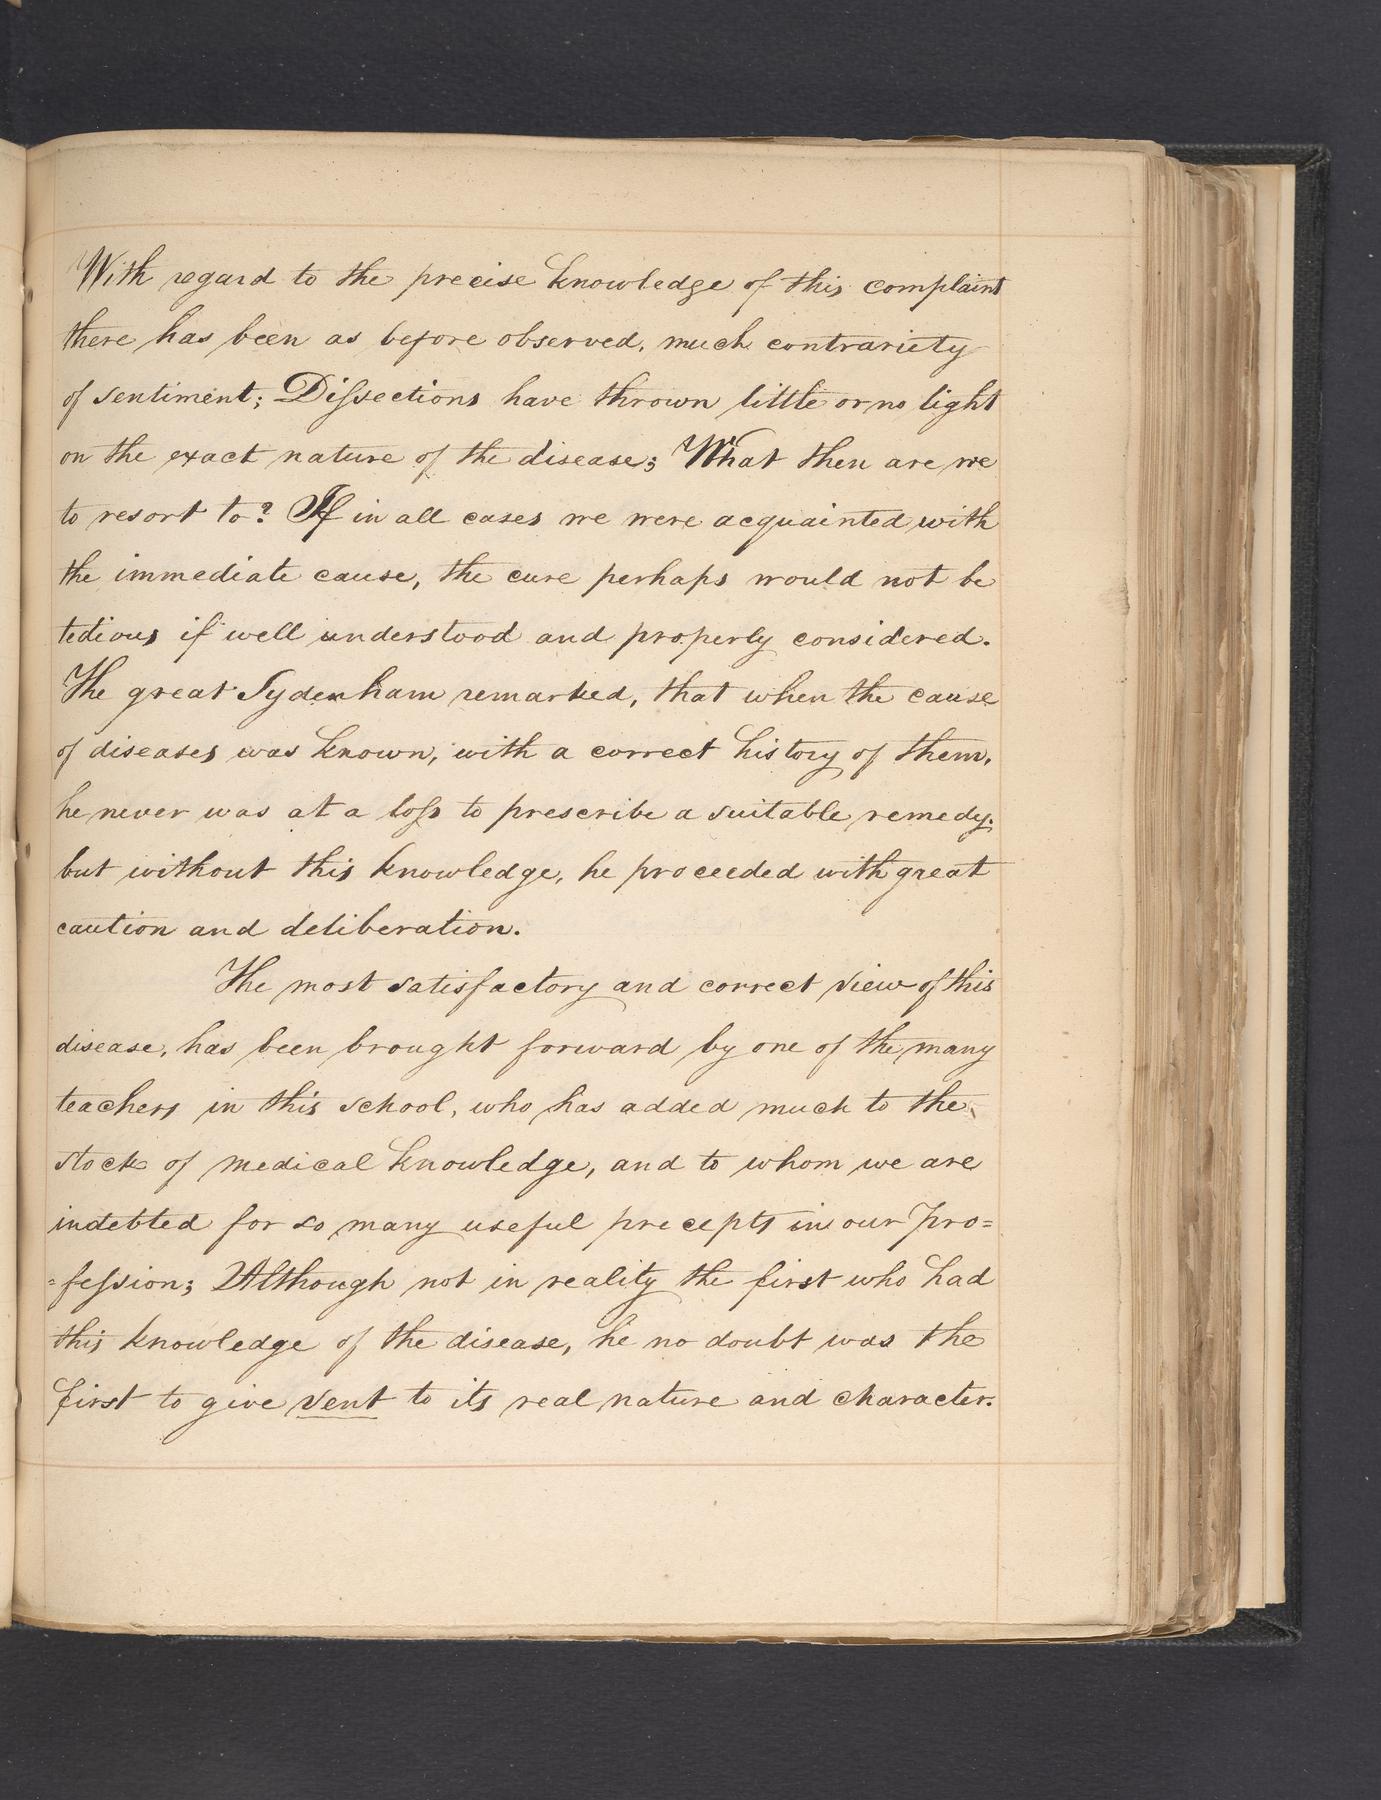 With regard to the precise knowledge of this complaint
there has been as before observed, much contrariety
of sentiment; Diſsections have thrown little or no light
on the exact nature of the disease; What then are we
to resort to? If in all cases we were acquainted with
the immediate cause, the cure perhaps would not be
tedious if well understood and properly considered.
The great Sydenham remarked, that when the cause
of diseases was known, with a correct history of them,
he never was at a loſs to prescribe a suitable remedy;
but without this knowledge, he proceeded with great
caution and deliberation.
The most satisfactory and correct view of this
disease, has been brought forward by one of the many
teachers in this school, who has added much to the
stock of medical knowledge, and to whom we are
indebted for so many useful precepts in our Pro=
=feſsion; Although not in reality the first who had
this knowledge of the disease, he no doubt was the
first to give vent to its real nature and character.